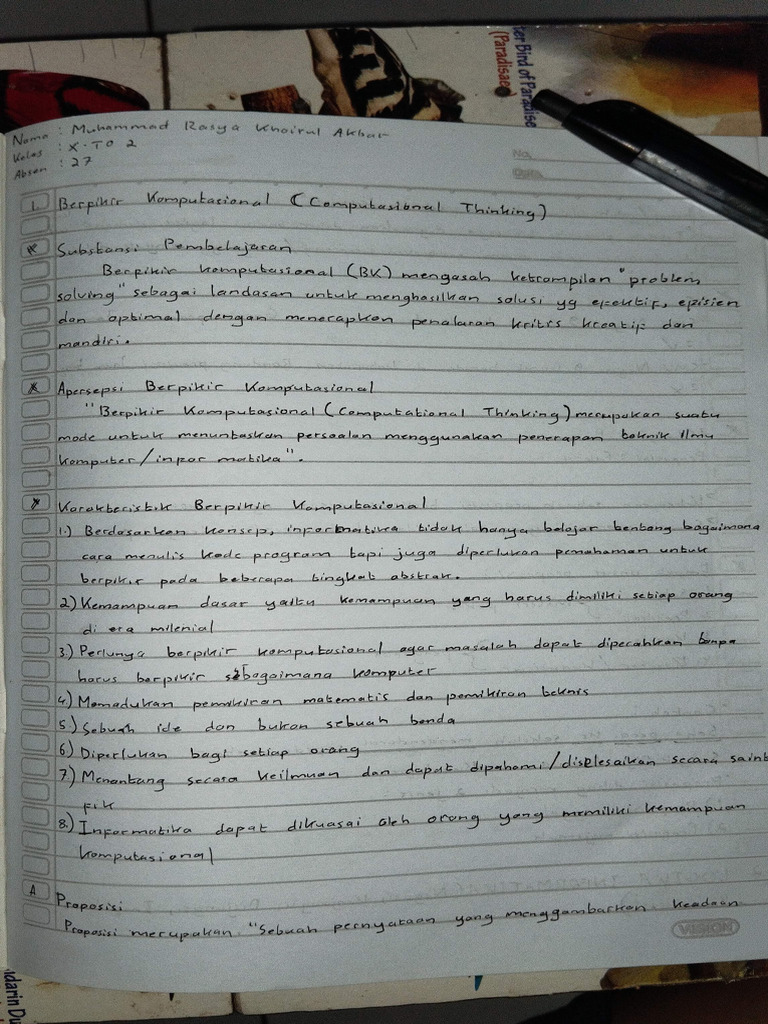 ter Bird of Paradise
(Paradisae
Nama : Muhammad Rasya Khoirul Akbar
Kelas : X-TO 2
Absen : 27
No.
Date.
1. Berpikir Komputasional (Computasional Thinking)
* Substansi Pembelajaran
Berpikir komputasional (BK) mengasah ketrampilan "problem
solving" sebagai landasan untuk menghasilkan solusi yg efektif, efisien
dan optimal dengan menerapkan penalaran kritis kreatif dan
mandiri.
* Apersepsi Berpikir Komputasional
"Berpikir Komputasional (Computational Thinking) merupakan suatu
mode untuk menuntaskan persoalan menggunakan penerapan teknik ilmu
komputer/informatika".
* Karakteristik Berpikir Komputasional
1.) Berdasarkan konsep, informatika tidak hanya belajar tentang bagaimana
cara menulis kode program tapi juga diperlukan pemahaman untuk
berpikir pada beberapa tingkat abstrak.
2) Kemampuan dasar yaitu kemampuan yang harus dimiliki setiap orang
di era milenial
3.) Perlunya berpikir komputasional agar masalah dapat dipecahkan tanpa
harus berpikir sebagaimana komputer
4) Memadukan pemikiran matematis dan pemikiran teknis
5) Sebuah ide dan bukan sebuah benda
6) Diperlukan bagi setiap orang
7) Menantang secara keilmuan dan dapat dipahami/diselesaikan secara saint
fik
8.) Informatika dapat dikuasai oleh orang yang memiliki kemampuan
komputasional
A Proposisi
Proposisi merupakan "Sebuah pernyataan yang menggambarkan keadaan
VISION
darin Du